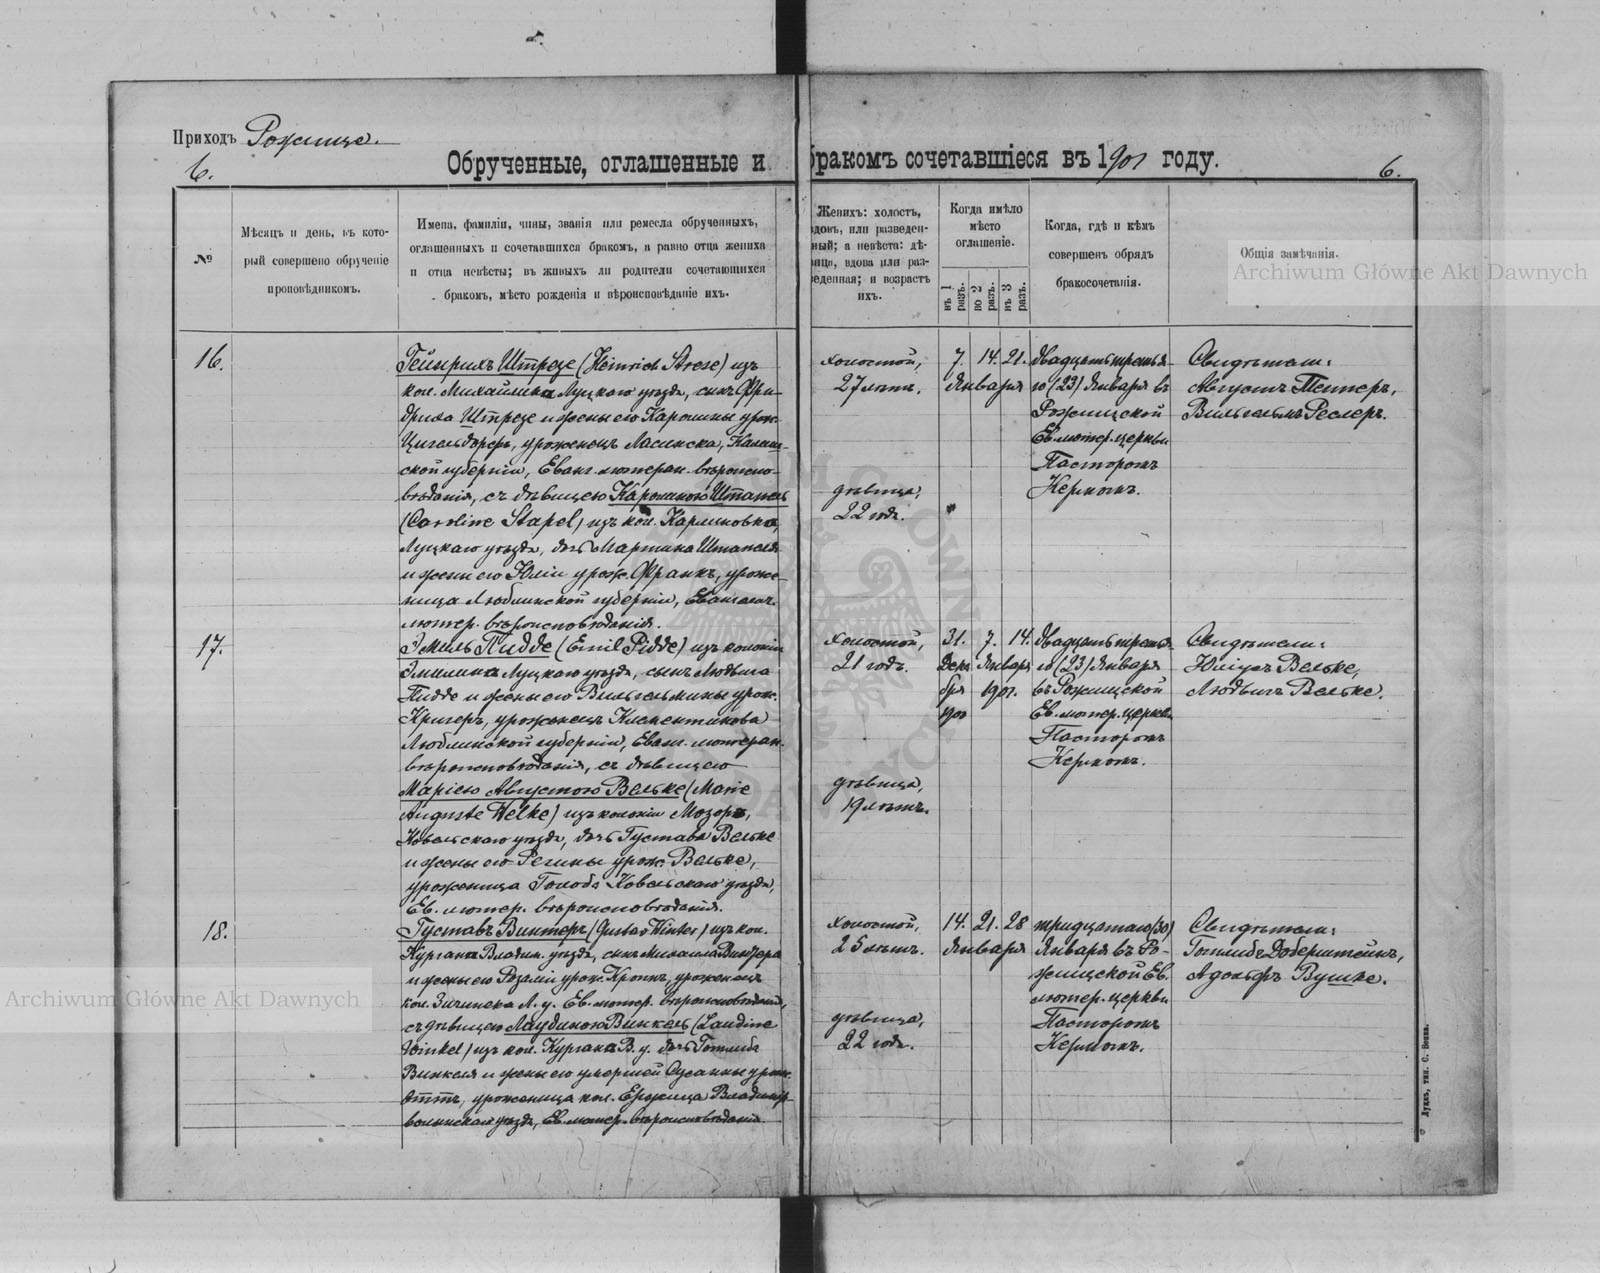 Приходъ Рожище.
6.
Обрученные, оглашенные и бракомъ сочетавшіеся въ 1901 году.
6.
№
Мѣсяцъ и день, въ кото-
рый совершено обрученіе
проповѣдникомъ.
Имена, фамиліи, чины, званія или ремесла обрученныхъ,
оглашенныхъ и сочетавшихся бракомъ, а равно отца жениха
и отца невѣсты; въ живыхъ ли родители сочетающихся
бракомъ, мѣсто рожденія и вѣроисповѣданіе ихъ.
Женихъ: холостъ,
вдовъ, или разведен-
ный; а невѣста: дѣ-
вица, вдова или раз-
веденная; и возрастъ
ихъ.
Когда имѣло
мѣсто
оглашеніе.
въ 1 разъ.
во 2 разъ.
въ 3 разъ.
Когда, гдѣ и кѣмъ
совершенъ обрядъ
бракосочетанія.
Общія замѣчанія.
Archiwum Główne Akt Dawnych
16.
Гейнрихъ Штрезе (Heinrich Strese) изъ
кол. Михайловка Луцкаго уѣзда, сынъ Фри-
дриха Штрезе и жены его Каролины урож.
Цигельдорфъ, уроженецъ Ласинска, Калиш-
ской губерніи, Еванг. лютеран. вѣроиспо-
вѣданія, съ дѣвицею Каролиною Штапель
(Caroline Stapel) изъ кол. Карлиновка
Луцкаго уѣзда, дочь Мартина Штапеля
и жены его Юліи урож. Франкъ, уроже-
ница Люблинской губерніи, Евангел.
лютер. вѣроисповѣданія.
холостой,
27 лѣтъ.
дѣвица,
22 годъ.
7. 14. 21.
Января
двадцать третья-
го (23) Января въ
Рожищской
Ев. лютер. церкви
Пасторомъ
Кермомъ.
Свидѣтели:
Августъ Теплеръ,
Вильгельмъ Реслеръ.
17.
Эмиль Пидде (Emil Pidde) изъ колоніи
Эмилина Луцкаго уѣзда, сынъ Людвига
Пидде и жены его Вильгельмины урож.
Кригеръ, уроженецъ Клементинова
Люблинской губерніи, Еванг. лютеран.
вѣроисповѣданія, съ дѣвицею
Маріею Августою Вельке (Marie
Auguste Welke) изъ колоніи Мозоръ,
Ковельскаго уѣзда, дочь Густава Вельке
и жены его Регины урож. Вельке,
уроженица Голоба Ковельскаго уѣзда,
Ев. лютер. вѣроисповѣданія.
холостой,
21 годъ.
дѣвица,
19 лѣтъ.
31. 7. 14.
Декабря 1900
Января 1901.
двадцать третья-
го (23) Января
въ Рожищской
Ев. лютер. церкви
Пасторомъ
Кермомъ.
Свидѣтели:
Юліусъ Вельке,
Людвигъ Вельке.
18.
Густавъ Винтеръ (Gustav Winter) изъ кол.
Курганъ Владим. уѣзда, сынъ Михаила Винтера
и жены его Розаліи урож. Кроппъ, уроженецъ
кол. Зичинека Л. у. Ев. лютер. вѣроисповѣданія,
съ дѣвицею Лаудиною Винкель (Laudine
Winkel) изъ кол. Курганъ В. у. дочь Готлиба
Винкеля и жены его умершей Сусанны урож.
Оттъ, уроженица кол. Владимір-
волынскаго уѣзда, Ев. лютер. вѣроисповѣданія.
холостой,
25 лѣтъ.
дѣвица,
22 годъ.
14. 21. 28
Января
тридцатаго (30)
Января въ Ро-
жищской Ев.
лютер. церкви
Пасторомъ
Кермомъ.
Свидѣтели:
Готлибъ Доберштейнъ,
Адольфъ Вушке.
Archiwum Główne Akt Dawnych
Луцкъ, тип. С. Бокка.